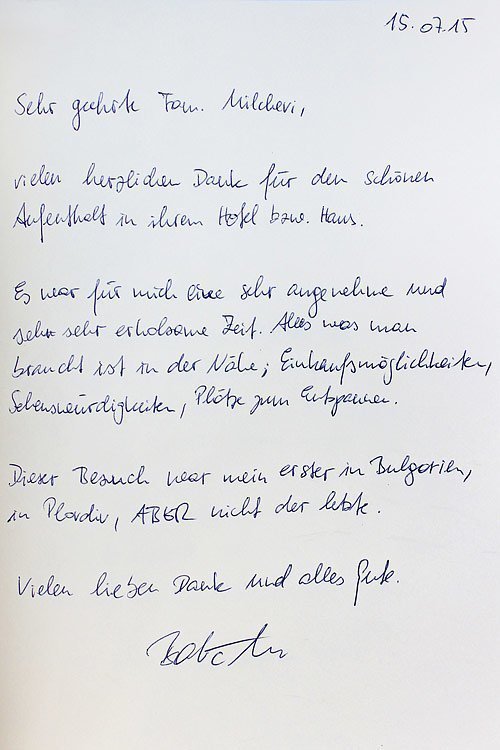 15.07.15
Sehr geehrte Fam. Milchevi,
vielen herzlichen Dank für den schönen
Aufenthalt in ihrem Hotel bzw. Haus.
Es war für mich eine sehr angenehme und
sehr sehr erholsame Zeit. Alles was man
braucht ist in der Nähe; Einkaufsmöglichkeiten,
Sehenswürdigkeiten, Plätze zum Entspannen.
Dieser Besuch war mein erster in Bulgarien,
in Plovdiv, ABER nicht der letzte.
Vielen lieben Dank und alles Gute.